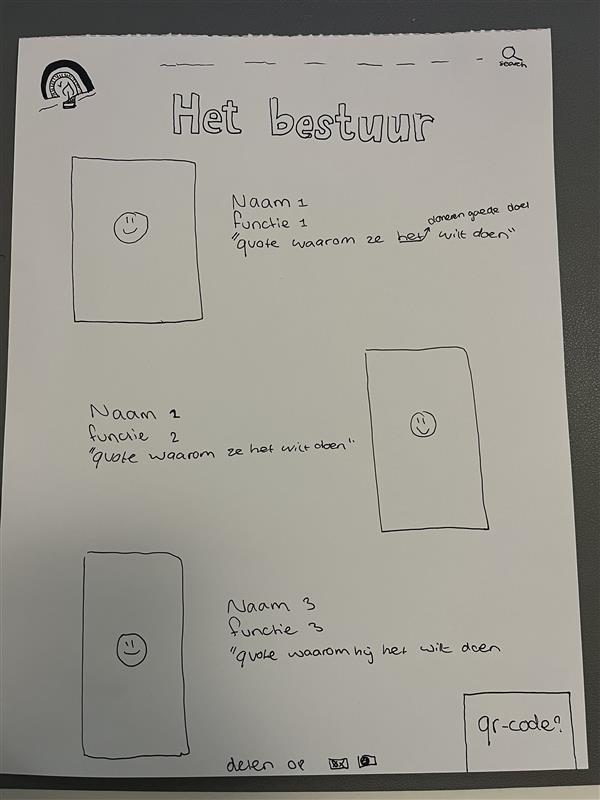 search
Het bestuur
Naam 1
functie 1
doneren goede doel
"quote waarom ze het wilt doen"
Naam 2
functie 2
"quote waarom ze het wilt doen"
Naam 3
functie 3
"quote waarom hij het wilt doen
qr-code?
delen op